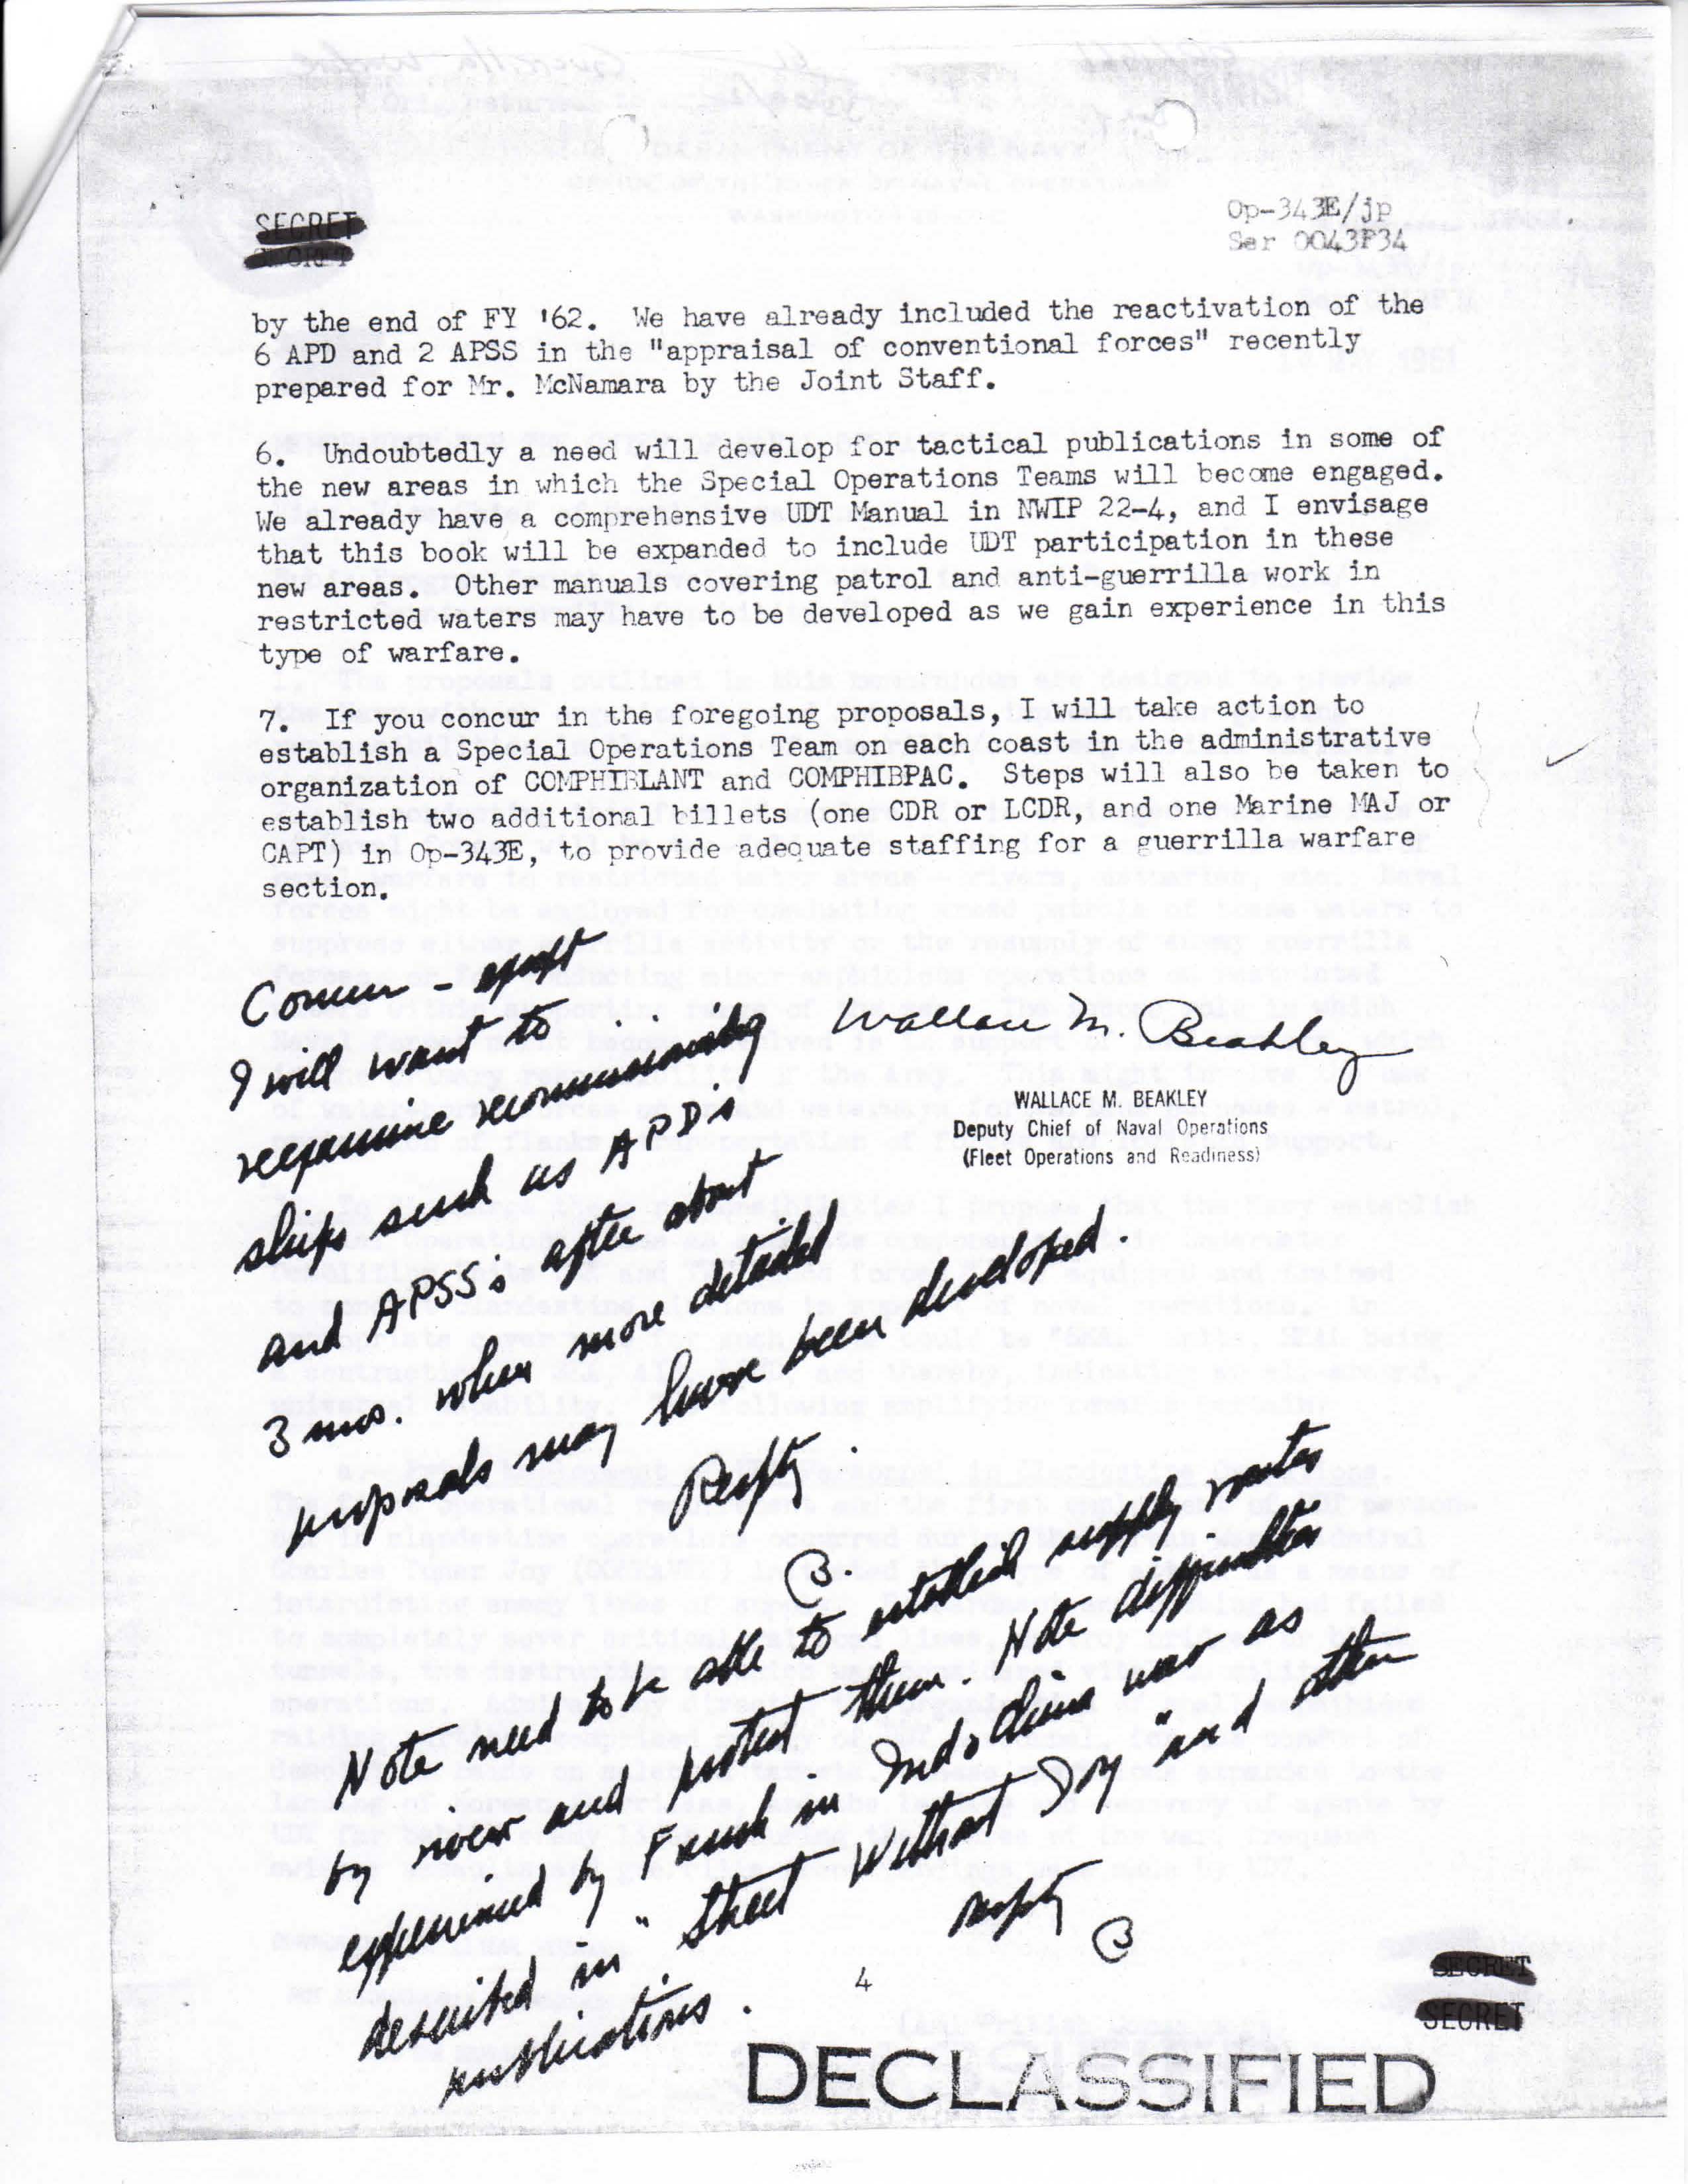 SECRET
SECRET
Op-343E/jp
Ser 0043P34
by the end of FY '62. We have already included the reactivation of the
6 APD and 2 APSS in the "appraisal of conventional forces" recently
prepared for Mr. McNamara by the Joint Staff.
6. Undoubtedly a need will develop for tactical publications in some of
the new areas in which the Special Operations Teams will become engaged.
We already have a comprehensive UDT Manual in NWIP 22-4, and I envisage
that this book will be expanded to include UDT participation in these
new areas. Other manuals covering patrol and anti-guerrilla work in
restricted waters may have to be developed as we gain experience in this
type of warfare.
7. If you concur in the foregoing proposals, I will take action to
establish a Special Operations Team on each coast in the administrative
organization of COMPHIBLANT and COMPHIBPAC. Steps will also be taken to
establish two additional billets (one CDR or LCDR, and one Marine MAJ or
CAPT) in Op-343E, to provide adequate staffing for a guerrilla warfare
section.
Wallace M. Beakley
WALLACE M. BEAKLEY
Deputy Chief of Naval Operations
(Fleet Operations and Readiness)
Concur - except
I will want to
reexamine recommissioning
ships such as APD's
and APSS's after about
3 mos. when more detailed
proposals may have been developed.
Respfy
B.
Note need to be able to establish supply routes
by river and protect them. Note difficulties
experienced by French in Indochina war as
described in "Street Without Joy" and other
publications.
respfy
B
4
SECRET
SECRET
DECLASSIFIED